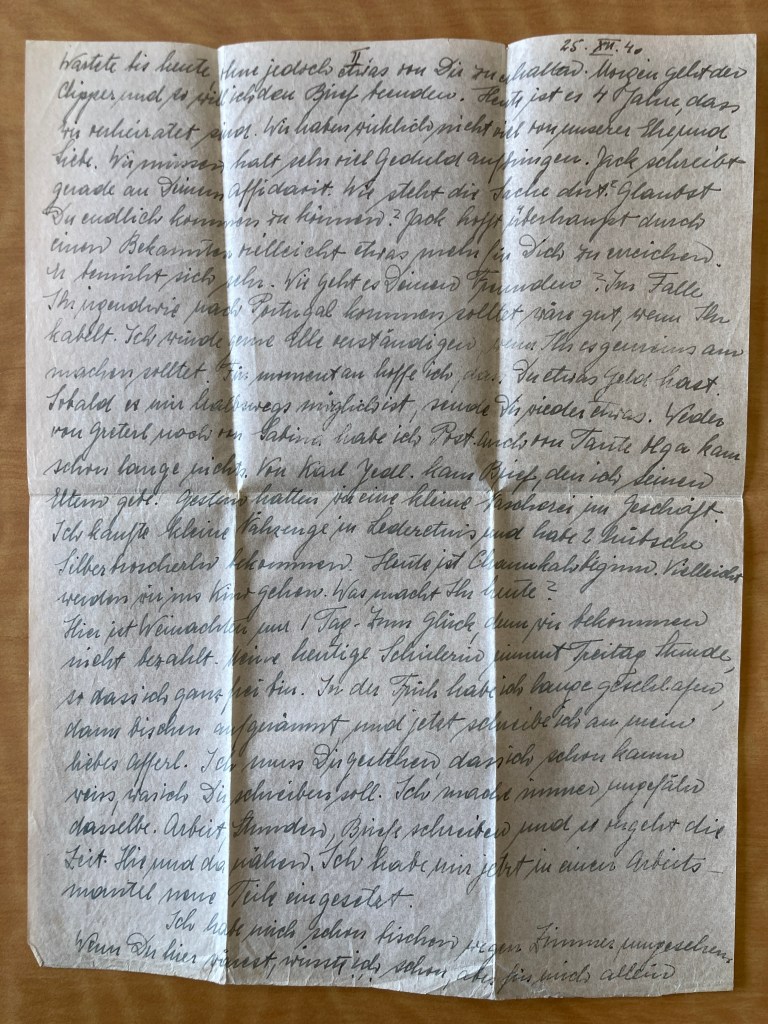 II 25. XII. 40
Wartete bis heute ohne jedoch etwas von Dir zu erhalten. Morgen geht der
Clipper und so will ich den Brief beenden. Heute ist es 4 Jahre, dass
wir verheiratet sind. Wir haben wirklich nicht viel von unserer Ehe und
Liebe. Wir müssen halt sehr viel Geduld aufbringen. Jack schreibt
gerade an Deinem Affidavit. Wie steht die Sache dort? Glaubst
Du endlich kommen zu können? Jack hofft überhaupt durch
einen Bekannten vielleicht etwas mehr für Dich zu erreichen.
Er bemüht sich sehr. Wie geht es Deinen Freunden? Im Falle
Ihr irgendwie nach Portugal kommen solltet wäre gut, wenn Ihr
kabelt. Ich würde gerne alle verständigen, wenn Ihr es gemeinsam
machen solltet. Für momentan hoffe ich, dass Du etwas Geld hast.
Sobald es mir halbswegs möglich ist, sende Dir wieder etwas. Weder
von Greterl noch von Sabina habe ich Post. Auch von Tante Olga kam
schon lange nichts. Von Karl Jedl. kam Brief, den ich seinen
Eltern gebe. Gestern hatten wir eine kleine Nascherei im Geschäft.
Ich kaufte kleine Nähzeuge in Lederetuis und habe 2 hübsche
Silberbroscherln bekommen. Heute ist Chanukahbeginn. Vielleicht
werden wir ins Kino gehen. Was macht Ihr heute?
Hier ist Weinachten nur 1 Tag. Zum Glück, denn wir bekommen
nicht bezahlt. Meine heutige Schülerin nimmt Freitag Stunde,
so dass ich ganz frei bin. In der Früh habe ich lange geschlafen,
dann bischen aufgeräumt und jetzt schreibe ich an mein
liebes Afferl. Ich muss Dir gestehen, dass ich schon kaum
weis, was ich Dir schreiben soll. Ich mache immer ungefähr
dasselbe. Arbeit, Stunden, Briefe schreiben und so vergeht die
Zeit. Hie und da nähen. Ich habe mir jetzt in einen Arbeits-
mantel neue Teile eingesetzt.
Ich habe mich schon bischen wegen Zimmer umgesehen.
Wenn Du hier wärest, wüsst ich schon, aber für mich allein